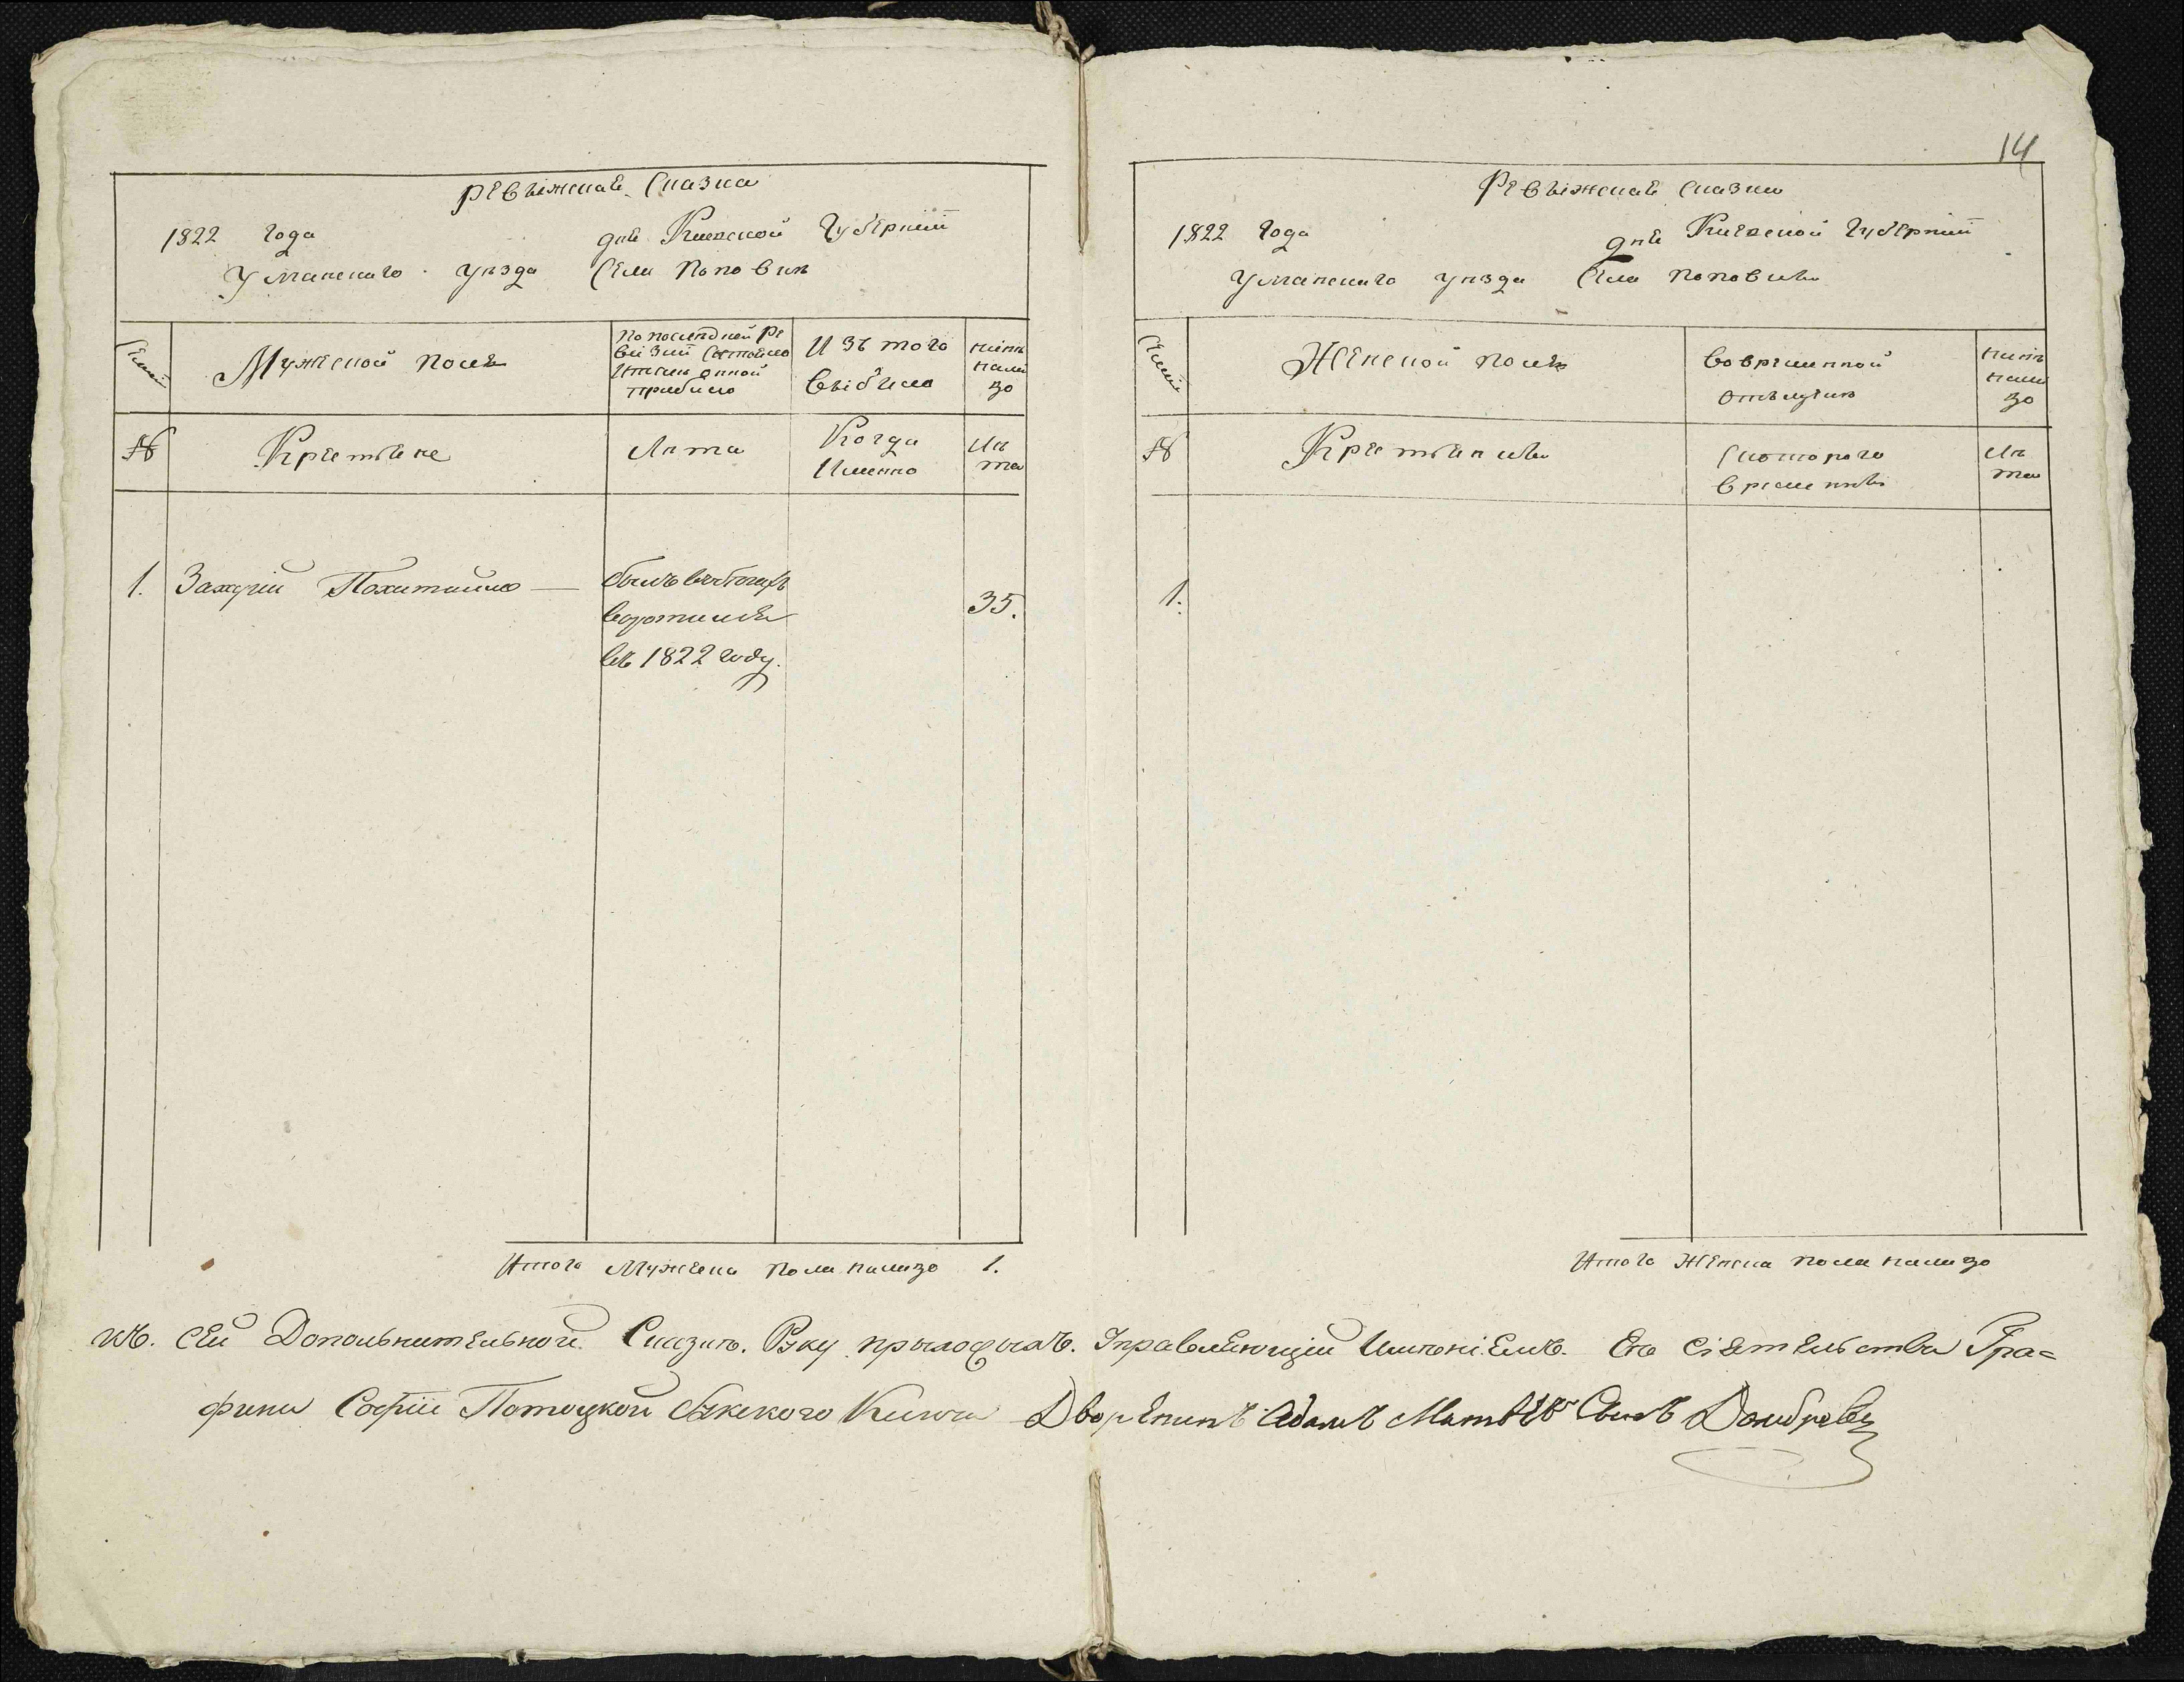 ревыжская Сказка
1822 года дня Киевской Губернии
Уманскаго уѣзда Села Поповик
Семьи
Мужеской полъ
По последней ре
визии состояло
и после оной
прибыло
Изъ того
выбыло
нинѣ
нали
зо
№
Крестьяне
Лѣта
Когда
Именно
Лѣ
та
1. Захарій Похитайло — былъ въ бегахъ
воротился
въ 1822 году.
35.
Итого Мужска пола нализо 1.
14
Ревыжская Сказка
1822 года дня Киевской Губернии
Уманскаго уѣзда Села Поповки
Семьи
Женской полъ
Во временной
отлучкѣ
нинѣ
нали
зо
№
Крестьянки
Скотораго
времены
Лѣ
та
1.
Итого Женска пола нализо
къ. сей Дополнительной Сказки. Руку прыложылъ. Управляющій Именіемъ. Ея Сіятельства Гра=
фини Софіи Потоцкой Ключа Дворенинъ Адамъ Матвеевъ Сынъ